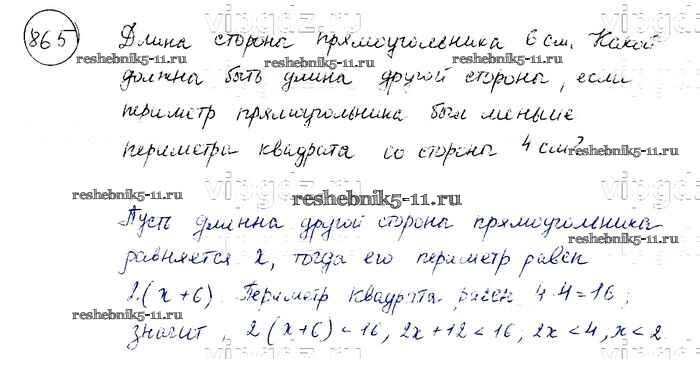 865 Длина сторона прямоугольника 6 см. Какой
должна быть длина другой стороны, если
периметр прямоугольника был меньше
периметра квадрата со стороны 4 см?
Пусть длинна другой сторона прямоугольника
равняется x, тогда его периметр равен
2·(x+6). Периметр квадрата равен 4·4=16;
значит, 2(x+6)<16, 2x+12<16; 2x<4, x<2
vipgdz.ru
reshebnik5-11.ru
reshebnik5-11.ru
reshebnik5-11.ru
reshebnik5-11.ru
reshebnik5-11.ru
reshebnik5-11.ru
reshebnik5-11.ru
reshebnik5-11.ru